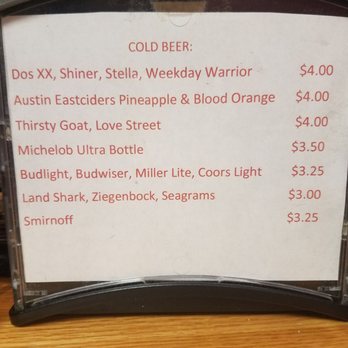 COLD BEER:
Dos XX, Shiner, Stella, Weekday Warrior $4.00
Austin Eastciders Pineapple & Blood Orange $4.00
Thirsty Goat, Love Street $4.00
Michelob Ultra Bottle $3.50
Budlight, Budwiser, Miller Lite, Coors Light $3.25
Land Shark, Ziegenbock, Seagrams $3.00
Smirnoff $3.25